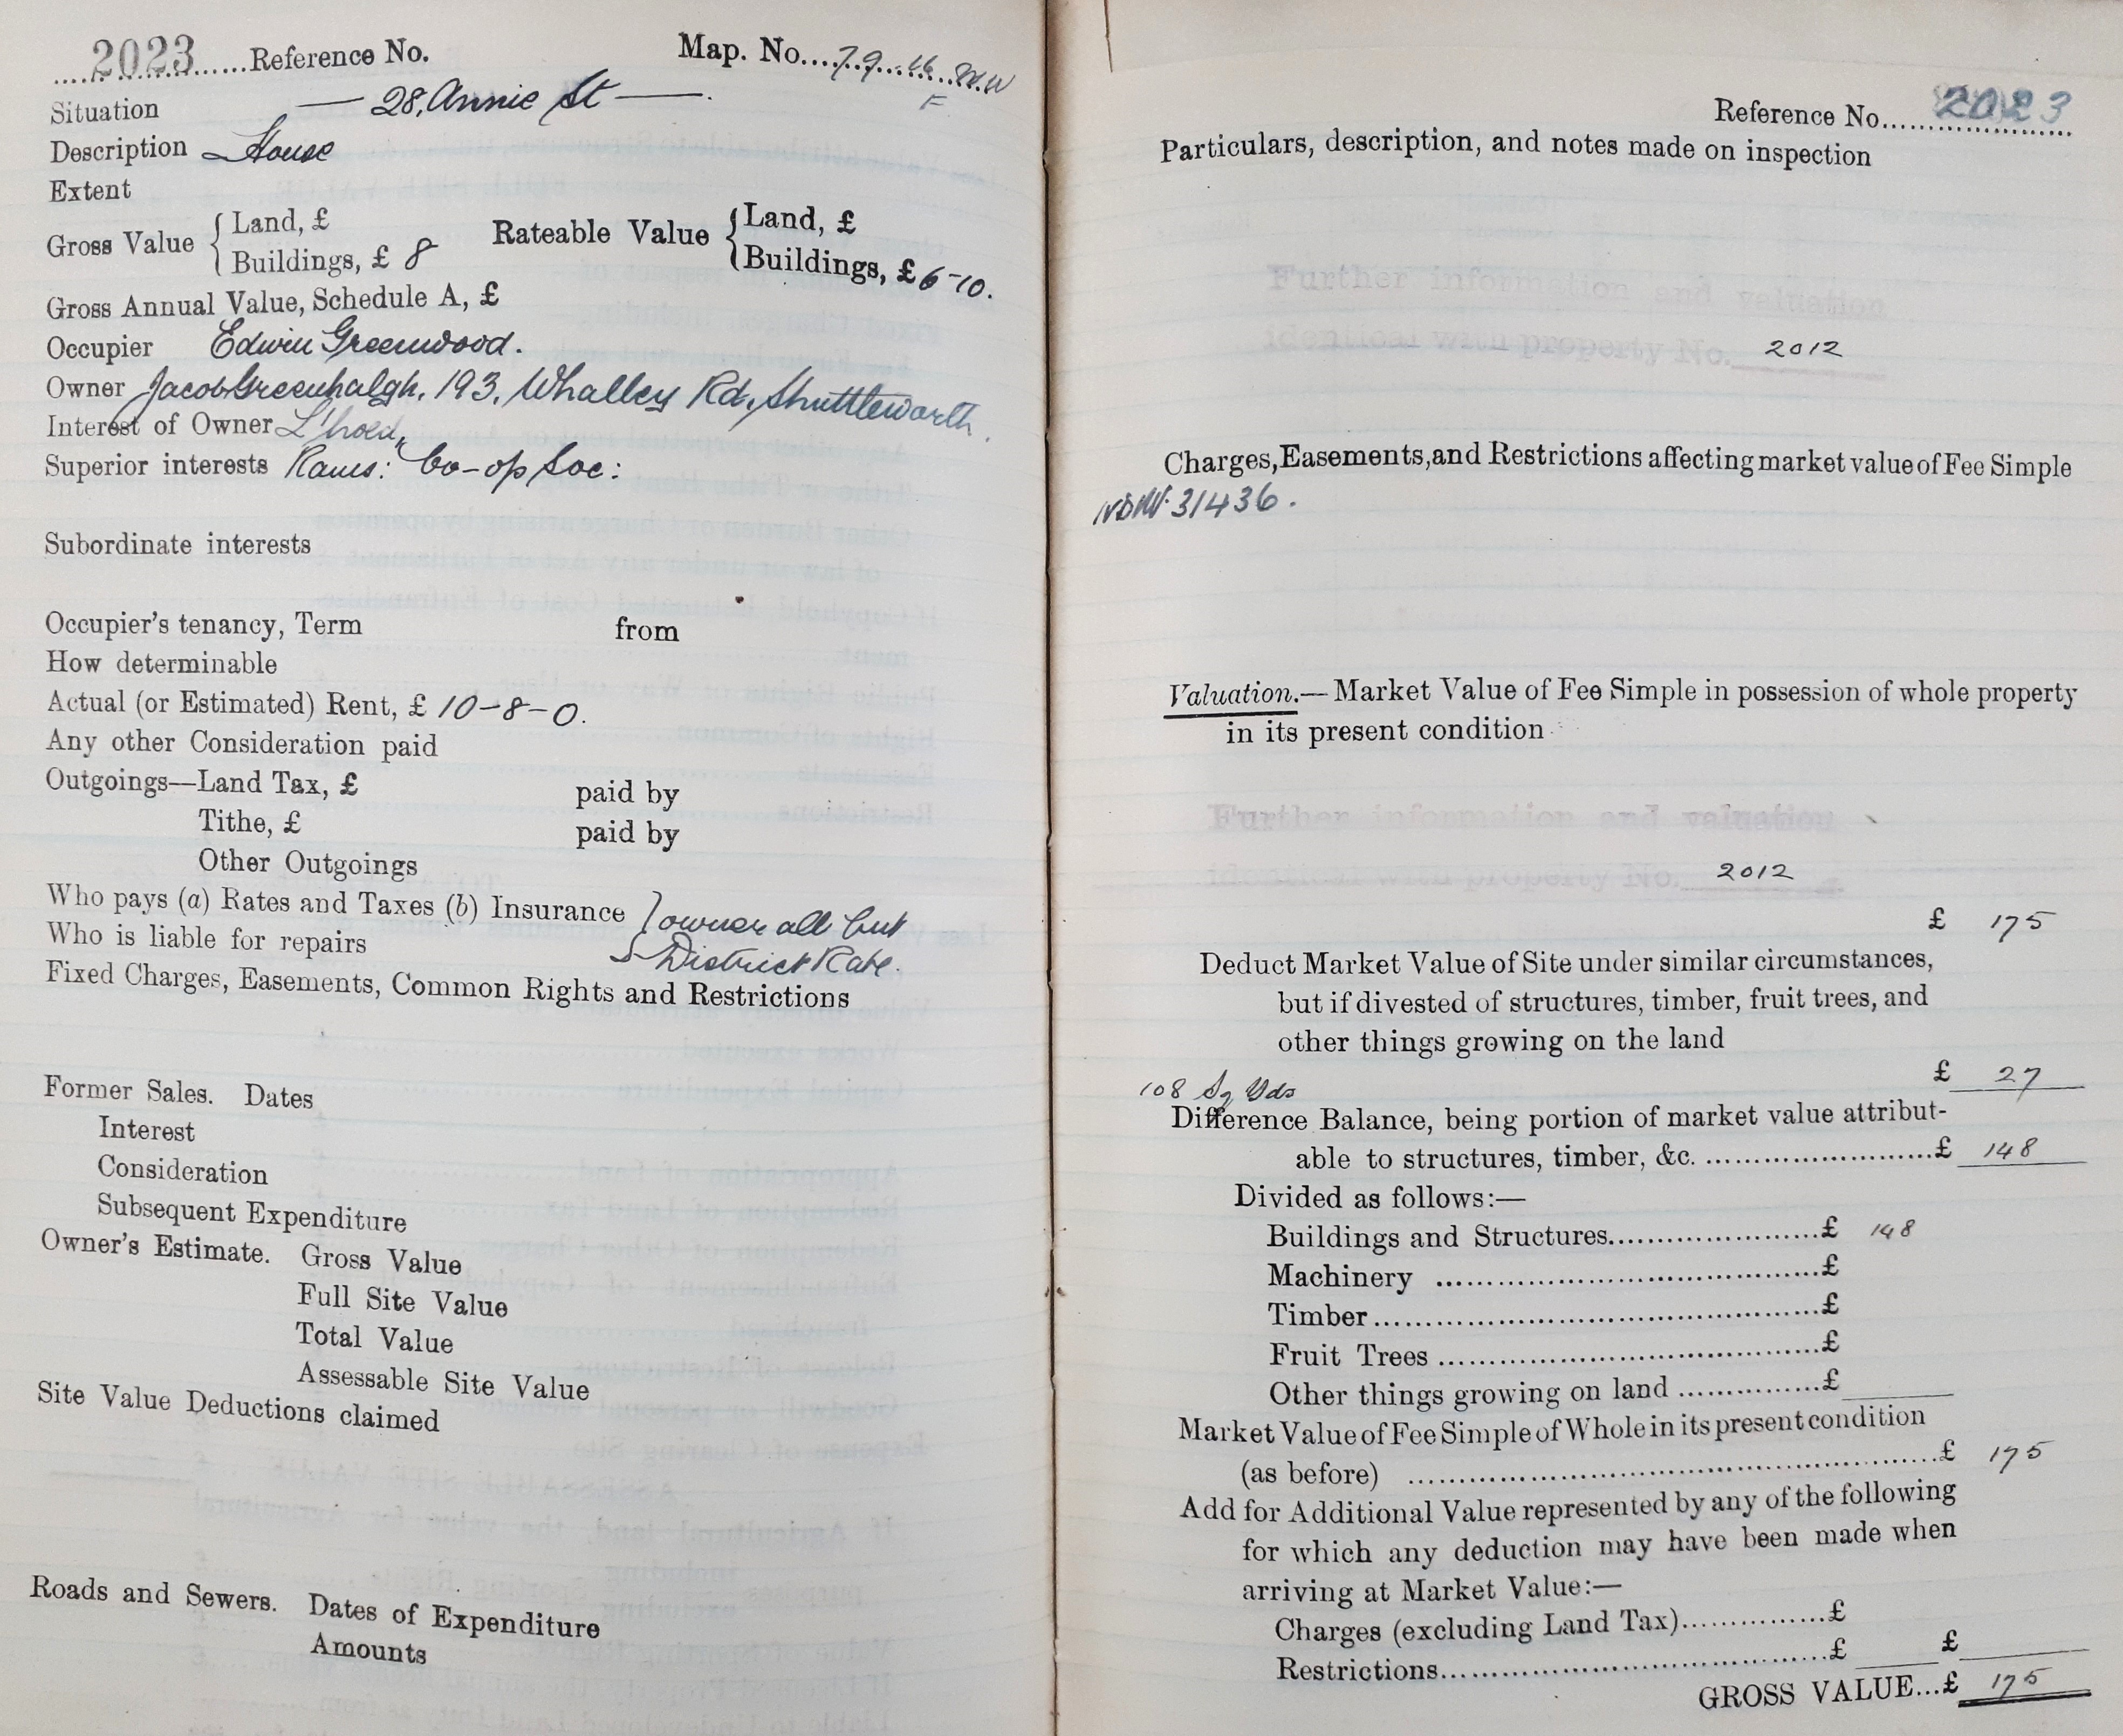 2023 Reference No. Map. No. 79
Situation — 28, Annie St —.
Description House
Extent
Gross Value { Land, £ Rateable Value { Land, £
Buildings, £ 8 Buildings, £ 6-10.
Gross Annual Value, Schedule A, £
Occupier Edwin Greenwood.
Owner Jacob Greenhalgh, 193, Whalley Rd, Shuttleworth.
Interest of Owner L'hold,
Superior interests Rams: Co-op Soc:
Subordinate interests
Occupier's tenancy, Term from
How determinable
Actual (or Estimated) Rent, £ 10-8-0.
Any other Consideration paid
Outgoings—Land Tax, £ paid by
Tithe, £ paid by
Other Outgoings
Who pays (a) Rates and Taxes (b) Insurance } owner all but
Who is liable for repairs District Rate.
Fixed Charges, Easements, Common Rights and Restrictions
Former Sales. Dates
Interest
Consideration
Subsequent Expenditure
Owner's Estimate. Gross Value
Full Site Value
Total Value
Assessable Site Value
Site Value Deductions claimed
Roads and Sewers. Dates of Expenditure
Amounts
Reference No. 2023
Particulars, description, and notes made on inspection
Further information and valuation
identical with property No. 2012
Charges, Easements, and Restrictions affecting market value of Fee Simple
31436.
Valuation.—Market Value of Fee Simple in possession of whole property
in its present condition
Further information and valuation
identical with property No. 2012
£ 175
Deduct Market Value of Site under similar circumstances,
but if divested of structures, timber, fruit trees, and
other things growing on the land
£ 27
108 Sq Yds
Difference Balance, being portion of market value attribut-
able to structures, timber, &c. £ 148
Divided as follows:—
Buildings and Structures £ 148
Machinery £
Timber £
Fruit Trees £
Other things growing on land £
Market Value of Fee Simple of Whole in its present condition
(as before) £ 175
Add for Additional Value represented by any of the following
for which any deduction may have been made when
arriving at Market Value:—
Charges (excluding Land Tax) £
Restrictions £ £
GROSS VALUE...£ 175